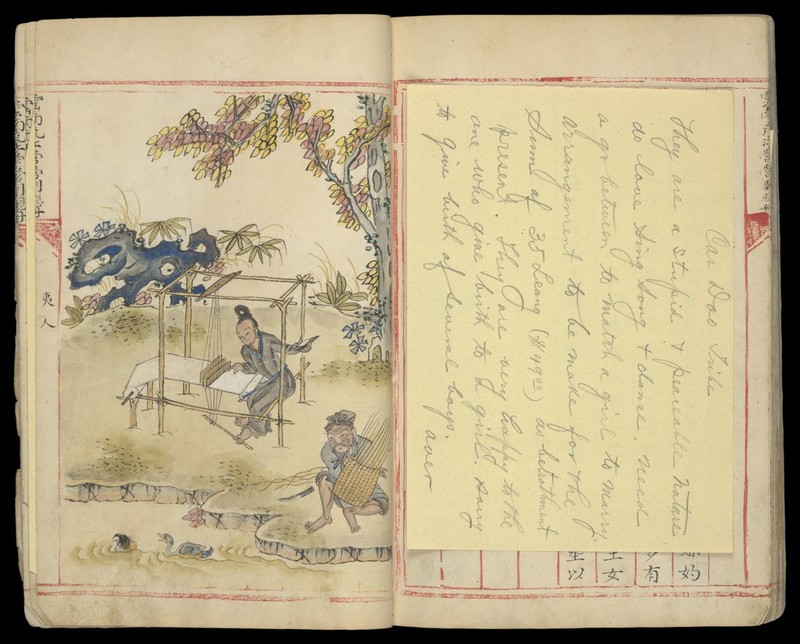 Dao Tribe
They are a stupid & peaceable nature.
do love sing song & dance. Need
a go between to match a girl to marry
arrangement to be made for the
Sum of 35 Leang ($49.00) as betrothment
present. They are very happy to the
one who give birth to girl. Sorry
to give birth of several boys.
over
妁
有
女
以
夷人